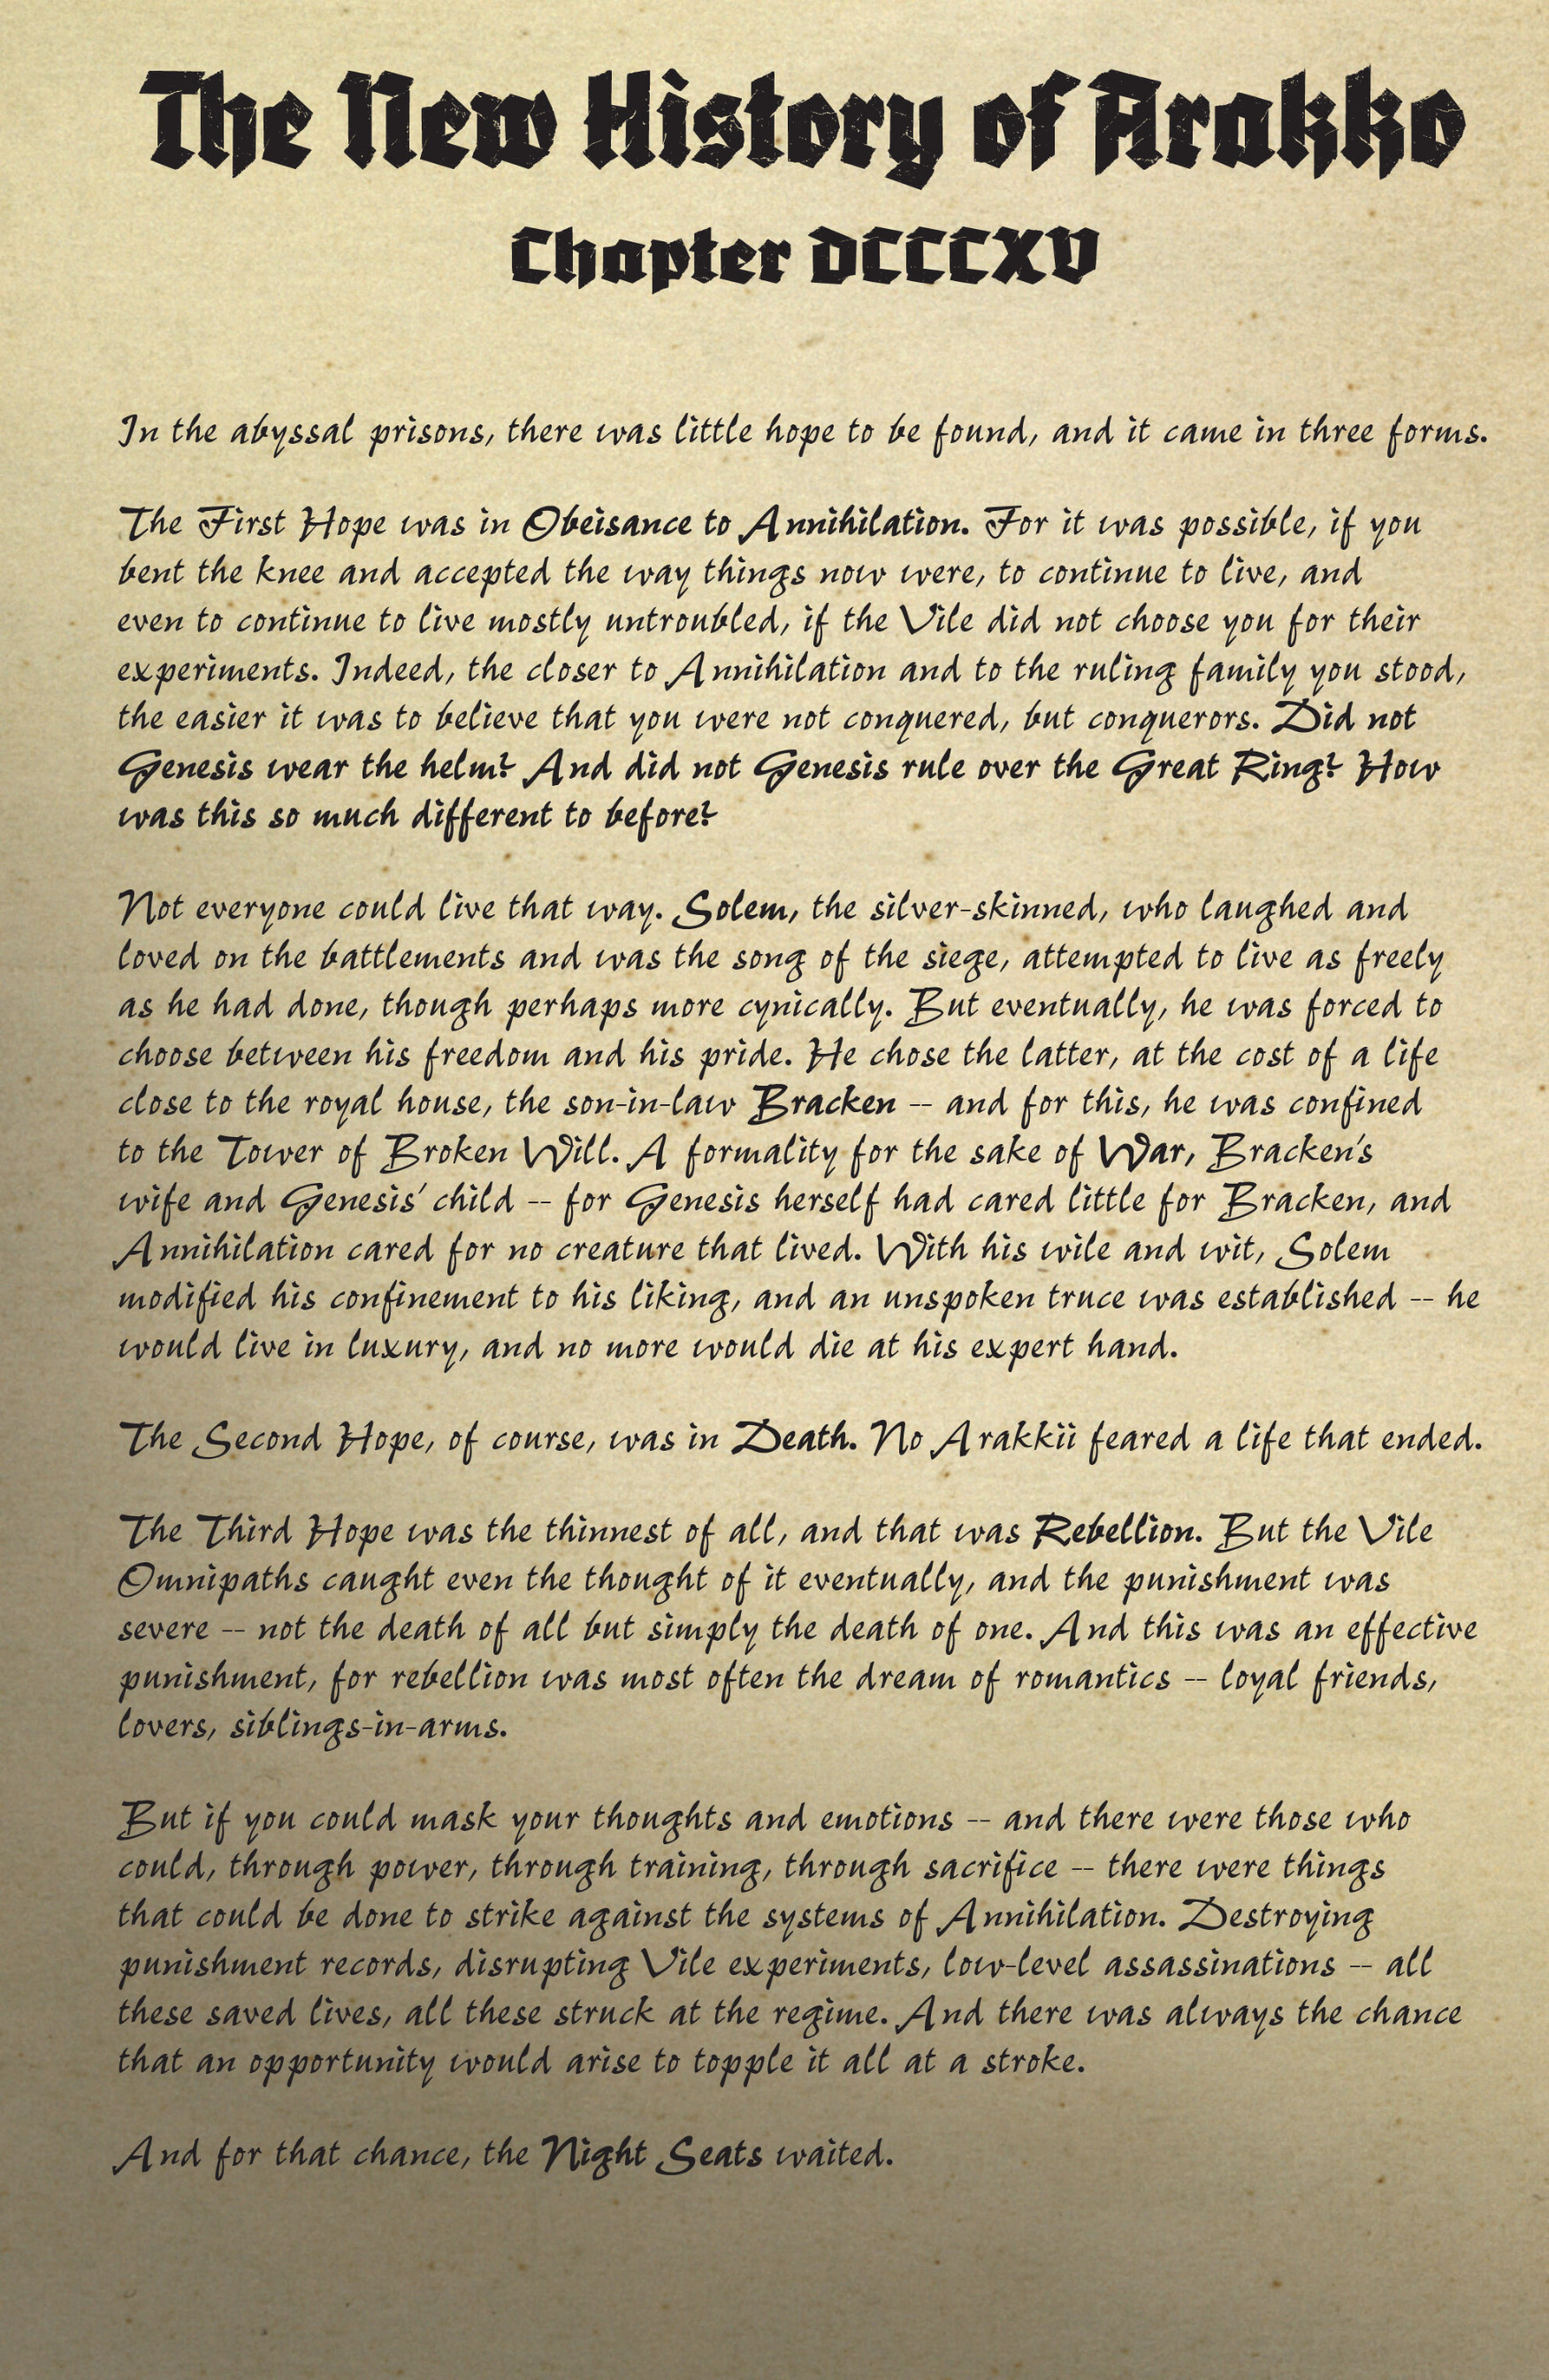 The New History of Arakko
Chapter DCCCXV
In the abyssal prisons, there was little hope to be found, and it came in three forms.
The First Hope was in Obeisance to Annihilation. For it was possible, if you
bent the knee and accepted the way things now were, to continue to live, and
even to continue to live mostly untroubled, if the Vile did not choose you for their
experiments. Indeed, the closer to Annihilation and to the ruling family you stood,
the easier it was to believe that you were not conquered, but conquerors. Did not
Genesis wear the helm? And did not Genesis rule over the Great Ring? How
was this so much different to before?
Not everyone could live that way. Solem, the silver-skinned, who laughed and
loved on the battlements and was the song of the siege, attempted to live as freely
as he had done, though perhaps more cynically. But eventually, he was forced to
choose between his freedom and his pride. He chose the latter, at the cost of a life
close to the royal house, the son-in-law Bracken -- and for this, he was confined
to the Tower of Broken Will. A formality for the sake of War, Bracken's
wife and Genesis' child -- for Genesis herself had cared little for Bracken, and
Annihilation cared for no creature that lived. With his wile and wit, Solem
modified his confinement to his liking, and an unspoken truce was established -- he
would live in luxury, and no more would die at his expert hand.
The Second Hope, of course, was in Death. No Arakkii feared a life that ended.
The Third Hope was the thinnest of all, and that was Rebellion. But the Vile
Omnipaths caught even the thought of it eventually, and the punishment was
severe -- not the death of all but simply the death of one. And this was an effective
punishment, for rebellion was most often the dream of romantics -- loyal friends,
lovers, siblings-in-arms.
But if you could mask your thoughts and emotions -- and there were those who
could, through power, through training, through sacrifice -- there were things
that could be done to strike against the systems of Annihilation. Destroying
punishment records, disrupting Vile experiments, low-level assassinations -- all
these saved lives, all these struck at the regime. And there was always the chance
that an opportunity would arise to topple it all at a stroke.
And for that chance, the Night Seats waited.